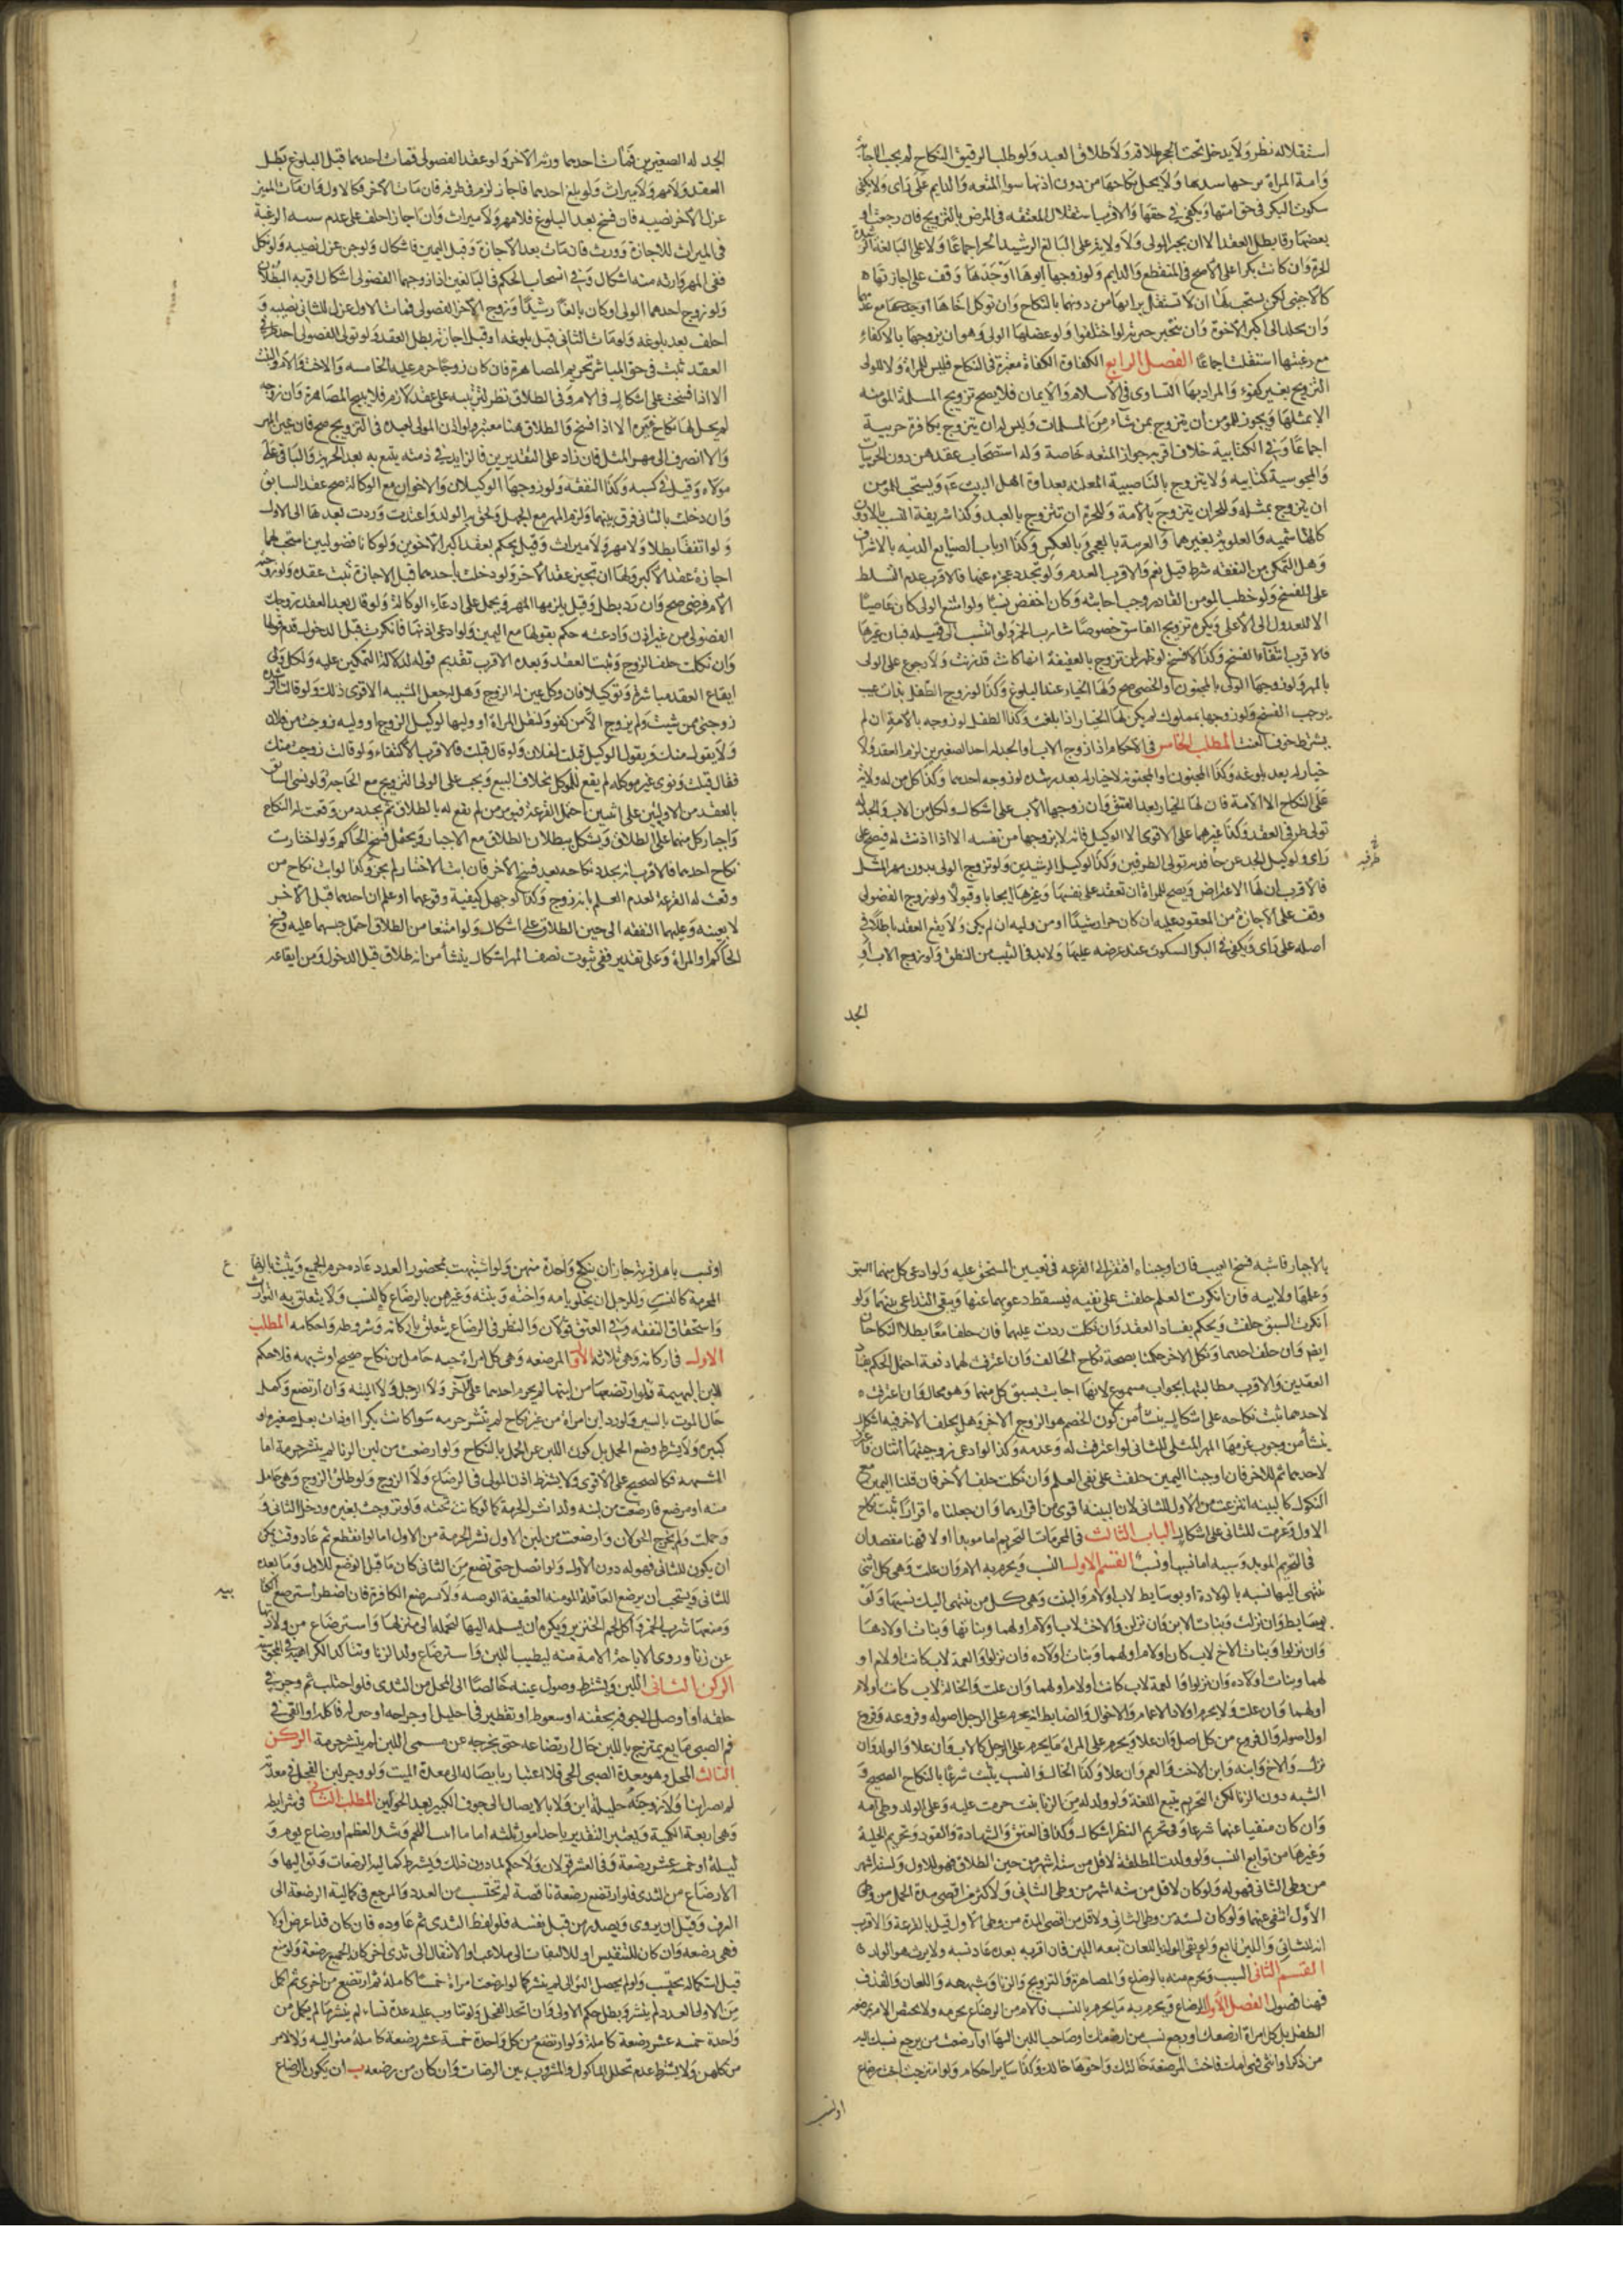 استقلاله نظر ولا يدخل تحت الحجر طلاقه ولا طلاق العبد ولو طلب الرقيق النكاح لم يجب الاجابة
وامة المراة يزوجها سيدها ولا يحل نكاحها من دون اذنها سوا المتعه والدايم على راى ولا يكفى
سكوت البكر فى حق امتها ويكفى فى حقها والاقرب استقلال المعتقه فى المرض بالتزويج فان رجعت او
بعضها رقا بطل العقد الا ان يجيز المولى ولا ولاية على البالغ الرشيد الحر اجماعا ولا على البالغة الرشيدة
الحرة وان كانت بكرا على الاصح فى المنقطع والدايم ولو زوجها ابوها او جدها وقف على اجازتها
كالاجنبى لكن يستحب لها ان لا تستقل من دونهما بالنكاح وان توكل اخاها مع عدمهما
وان يخلد الى اكبر الاخوة وان يتخير خيرته لو اختلفوا ولو عضلها الولى وهو ان يزوجها بالاكفاء
مع رغبتها استقلت اجماعا الفصل الرابع الكفاة الكفاة معتبرة فى النكاح فليس للمراة ولا للولى
التزويج بغير كفوء والمراد بها التساوى فى الاسلام والايمان فلا يصح تزويج المسلمة المؤمنه
الا بمثلها ويجوز للمؤمن ان يتزوج بمن شاء من المسلمات وليس له ان يتزوج بكافرة حربية
اجماعا وفى الكتابية خلاف اقربه جواز المتعه خاصة وله استصحاب عقدهن دون الحربيات
والمجوسية كتابيه ولا يتزوج بالناصبية المعلنه بعداوة اهل البيت ع ويستحب للمؤمن
ان يتزوج بمثله وللحر ان يتزوج بالامة وللحرة ان تتزوج بالعبد وكذا شريفة النسب بالادون
كالهاشميه والعلوية بغيرهما والعربية بالعجمى وبالعكس وكذا ارباب الصنايع الدنيه بالاشراف
وهل التمكن من النفقه شرط قيل نعم والاقرب العدم ولو تجدد عجزه عنها فالاقرب عدم التسلط
على الفسخ ولو خطب المؤمن القادر وجب اجابته وكان اخفض نسبا ولو امتنع الولى كان عاصيا
الا للعدول الى الاعلى ويكره تزويج الفاسق خصوصا شارب الخمر ولو انتسب الى قبيله فبان غيرها
فالاقرب انتفاء الفسخ وكذا لا فسخ لو ظهر لمن تزوج بالعفيفة انها كانت قد زنت ولا رجوع على الولى
بالمهر ولو زوجها الولى بالمجنون او الخصى صح ولها الخيار عند البلوغ وكذا لو زوج الطفل بذات عيب
يوجب الفسخ ولو زوجها بمملوك لم يكن لها الخيار اذا بلغت وكذا الطفل لو زوجه بالامة ان لم
يشترط خوف العنت المطلب الخامس فى الاحكام اذا زوج الاب او الجد له احد الصغيرين لزم العقد ولا
خيار له بعد بلوغه وكذا المجنون او المجنونة لا خيار له بعد رشده لو زوجه احدهما وكذا كل من له ولاية
على النكاح الا الامة فان لها الخيار بعد العتق وان زوجها الاب على اشكال ولكل من الاب والجد له
تولى طرفى العقد وكذا غيرهما على الاقوى الا الوكيل فانه لا يزوجها من نفسه الا اذا اذنت له فيصح على
راى ولوكيل الجد عن حافديه تولى الطرفين وكذا لوكيل الرشيدين ولو تزوج الولى بدون مهر المثل
فالاقرب ان لها الاعتراض ويصح للمراة ان تعقد على نفسها وغيرها ايجابا وقبولا ولو زوج الفضولى
وقف على الاجازة من المعقود عليه ان كان حرا رشيدا او من وليه ان لم يكن ولا يقع العقد باطلا فى
اصله على راى ويكفى فى البكر السكوت عند عرضه عليها ولا بد فى الثيب من النطق ولو زوج الاب او
الجد
الجد له الصغيرين فمات احدهما ورثه الاخر ولو عقد الفضولى فمات احدهما قبل البلوغ بطل
العقد ولا مهر ولا ميراث ولو بلغ احدهما فاجاز لزم فى طرفه فان مات الاخر فكالاول وان مات المجيز
عزل للاخر نصيبه فان فسخ بعد البلوغ فلا مهر ولا ميراث وان اجاز احلف على عدم سببية الرغبة
فى الميراث للاجازة وورث فان مات بعد الاجازة وقبل اليمين فاشكال ولو جن عزل نصيبه ولو نكل
ففى المهر وارثه منه اشكال وفى انسحاب الحكم فى البالغين اذا زوجهما الفضولى اشكال اقربه البطلان
ولو زوج احدهما الولى او كان بالغا رشيدا وزوج الاخر الفضولى فمات الاول عزل للثانى نصيبه و
احلف بعد بلوغه ولو مات الثانى قبل بلوغه او قبل اجازته بطل العقد ولو تولى الفضولى احد طرفى
العقد ثبت فى حق المباشر تحريم المصاهرة فان كان زوجا حرم عليه الخامسه والاخت والام والبنت
الا اذا فسخت على اشكال فى الام وفى الطلاق نظر لترتبه على عقد لازم فلا يبيح المصاهرة وان زوجة
لم يحل لها نكاح غيره الا اذا فسخ والطلاق هنا معتبر ولو اذن المولى لعبده فى التزويج صح فان عين المهر
والا انصرف الى مهر المثل فان زاد على التقديرين فالزايد فى ذمته يتبع به بعد الحرية والباقى على
مولاه وقيل فى كسبه وكذا النفقه ولو زوجها الوكيلان والاخوان مع الوكالة صح عقد السابق
وان دخلت بالثانى فرق بينهما ولزم المهر مع الجهل ولحق به الولد واعتدت وردت بعدها الى الاول
ولو اتفقا بطلا ولا مهر ولا ميراث وقيل يحكم بعقد اكبر الاخوين ولو كانا فضوليين استحب لها
اجازة عقد الاكبر ولها ان تجيز عقد الاخر ولو دخلت باحدهما قبل الاجازة ثبت عقده ولو زوجته
الام فرضى صح وان رد بطل وقيل يلزمها المهر ويحمل على ادعاء الوكالة ولو قال بعد العقد زوجك
الفضولى من غير اذن وادعته حكم بقولها مع اليمين ولو ادعى اذنها فانكرت قبل الدخول قدم قولها
وان نكلت حلف الزوج وثبت العقد وبعده الاقرب تقديم قوله لدلالة التمكين عليه ولكل ولى
ايقاع العقد مباشرة وتوكيلا فان وكل عين له الزوج وهل له جعل المشيه الاقوى ذلك ولو قالت الرشيدة
زوجنى ممن شيت ولم يزوج الا من كفو ولتقل المراة او وليها لوكيل الزوج او وليه زوجت من فلان
ولا يقول منك ويقول الوكيل قبلت لفلان ولو قال قبلت فالاقرب الاكتفاء ولو قالت زوجت منك
فقال قبلت ونوى عن موكله لم يقع للموكل بخلاف البيع ويجب على الولى التزويج مع الحاجة ولو نسى السابق
بالعقد من الوليين على اثنين احتمل القرعة فيؤمر من لم تقع له بالطلاق ثم يجدد من وقعت له النكاح
واجبار كل منهما على الطلاق ويشكل ببطلان الطلاق مع الاجبار ويحتمل فسخ الحاكم ولو اختارت
نكاح احدهما فالاقرب انه يجدد نكاحه بعد فسخ الاخر فان ابت الاختيار لم يجبر وكذا لو ابت نكاح من
وقعت له القرعة لعدم العلم بانه زوج وكذا لو جهل كيفية وقوعهما او علم ان احدهما قبل الاخر
لا بعينه وعليهما النفقه الى حين الطلاق على اشكال ولو امتنعا من الطلاق احتمل حبسهما عليه وفسخ
الحاكم او المراة وعلى تقديره ففى ثبوت نصف المهر اشكال ينشأ من انه طلاق قبل الدخول ومن ايقاعه
بالاجبار فاشبه فسخ العيب فان اوجبناه افتقر الى القرعه فى تعيين المستحق عليه ولو ادعى كل منهما السبق
وعلمها ولا بينه فان انكرت العلم حلفت على نفيه فيسقط دعويهما عنها ويبقى التداعى بينهما ولو
انكرت السبق حلفت ويحكم بفساد العقد وان نكلت ردت عليهما فان حلفا معا بطلا النكاحان
ايضا وان حلف احدهما ونكل الاخر حكمنا بصحة نكاح الحالف وان اعترفت لهما دفعة احتمل الحكم بفساد
العقدين والاقرب مطالبتها بجواب مسموع لانها اجابت بسبق كل منهما وهو محال وان اعترفت
لاحدهما ثبت نكاحه على اشكال ينشأ من كون الخصم هو الزوج الاخر وهل يحلف الاخر فيه اشكال
ينشأ من وجوب غرمها المهر المثلى للثانى لو اعترفت له وعدمه وكذا لو ادعى زوجيتها اثنان فاعترفت
لاحدهما ثم للاخر فان اوجبنا اليمين حلفت على نفى العلم وان نكلت حلف الاخر فان قلنا اليمين مع
النكول كالبينه انتزعت من الاول للثانى لان البينه اقوى من اقرارها وان جعلناه اقرارا ثبت نكاح
الاول وغرمت للثانى على اشكال الباب الثالث فى المحرمات التحريم اما مؤبد او لا فهنا مقصدان
فى التحريم المؤبد وسببه اما نسب او سبب القسم الاول النسب ويحرم به الام وان علت وهى كل انثى
ينتهى اليها نسبه بالولادة او بوسايط لاب او لام والبنت وهى كل من ينتهى اليك نسبها ولو
بوسايط وان نزلت وبنات الابن وان نزلن والاخت لاب او لام او لهما وبناتها وبنات اولادها
وان نزلوا وبنات الاخ لاب كان او لام او لهما وبنات اولاده وان نزلوا والعمة لاب كانت او لام او
لهما وبنات اولاده وان نزلوا والعمة لاب كانت او لام او لهما وان علت والخالة لاب كانت او لام
او لهما وان علت ولا يحرم اولاد الاعمام والاخوال والضابط انه يحرم على الرجل اصوله وفروعه وفروع
اول اصوله واول فرع من كل اصل وان علا ويحرم على المراة ما يحرم على الرجل كالاب وان علا والولد وان
نزل والاخ وابنه وابن الاخت والعم وان علا وكذا الخال والنسب يثبت شرعا بالنكاح الصحيح و
الشبه دون الزنا لكن التحريم يتبع اللغة ولو ولد له من الزنا بنت حرمت عليه وعلى الولد وطى امه
وان كان منفيا عنهما شرعا وفى تحريم النظر اشكال وكذا فى العتق والشهادة والقود وتحريم الحليلة
وغيرها من توابع النسب ولو ولدت المطلقة لاقل من ستة اشهر من حين الطلاق فهو للاول ولستة اشهر
من وطى الثانى فهو له ولو كان لاقل من سته اشهر من وطى الثانى ولاكثر من اقصى مدة الحمل من وطى
الاول انتفى عنهما ولو كان لستة من وطى الثانى ولاقل من اقصى المدة من وطى الاول قيل بالقرعة والاقرب
انه للثانى واللبن تابع ولو نفى الولد باللعان تبعه اللبن فان اقر به بعده عاد نسبه ولا يرث هو الولد
القسم الثانى السبب ويحرم منه بالرضاع والمصاهرة والتزويج والزنا وشبهه واللعان والقذف
فهنا فصول الفصل الاول الرضاع ويحرم به ما يحرم بالنسب فالام من الرضاع محرمه ولا يختص الام بمرضعه
الطفل بل كل امراة ارضعتك او رجع نسب من ارضعتك او صاحب اللبن اليها او ارضعت من يرجع نسبك اليه
من ذكر او انثى فهى امك فاخت المرضعة خالتك واخوها خالك وكذا ساير احكام ولو امتزجت اخت رضاع
او نسب
او نسب باهل قرية جاز ان ينكح واحدة منهن ولو اشتبهت بمحصور العدد عادة حرم الجميع ويثبت بالرضاع
المحرمية كالنسب وللرجل ان يخلو بامه واخته وبنته وغيرهن بالرضاع كالنسب ولا يتعلق به التوارث
واستحقاق النفقه وفى العتق قولان والنظر فى الرضاع يتعلق باركانه وشروطه واحكامه المطلب
الاول فى اركانه وهى ثلاثه الاول المرضعه وهى كل امراة حيه حامل من نكاح صحيح او شبهه فلا حكم
للبن البهيمة فلو ارتضعها من ابنتها لم يحرم احدهما على الاخر ولا الرجل ولا الميته وان ارتضع وكمله
حال الموت باليسير ولو در لبن امراة من غير نكاح لم ينشر حرمه سوا كانت بكرا او ذات بعل صغيرة او
كبيرة ولا يشترط وضع الحمل بل كون اللبن عن الحمل بالنكاح ولو ارضعت من لبن الزنا لم ينشر حرمة اما
الشبهه فكالصحيح على الاقوى ولا يشترط اذن المولى فى الرضاع ولا الزوج ولو طلق الزوج وهى حامل
منه او مرضع فارضعت من لبنه ولدا نشر الحرمة كما لو كانت تحته ولو تزوجت بغيره ودخل الثانى و
حملت ولم يخرج الحولان وارضعت من لبن الاول نشر الحرمة من الاول اما لو انقطع ثم عاد وقت يمكن
ان يكون للثانى فهو له دون الاول ولو اتصل حتى تضع من الثانى كان ما قبل الوضع للاول وما بعده
للثانى ويستحب ان يرضع العاقلة المؤمنه العفيفة الوضيئه ولا تسترضع الكافرة فان اضطر استرضع الكتابية
ومنعها شرب الخمر واكل لحم الخنزير ويكره ان يسلمه اليها لتحمله الى منزلها واسترضاع من ولادتها
عن زنا وروى الاباحة الامة منه ليطيب اللبن واسترضاع ولد الزنا وتتأكد الكراهية فى المجوسية
الركن الثانى اللبن ويشترط وصول عينه خالصا الى المحل من الثدى فلو احتلب ثم وجر فى
حلقه او اوصل الى جوفه بحقنه او سعوط او تقطير فى احليل او جراحه او جبن له فاكله او القى فى
فم الصبى مايع يمتزج باللبن حال ارتضاعه حتى يخرجه عن مسمى اللبن لم ينشر حرمة الركن
الثالث المحل وهو معدة الصبى الحى فلا اعتبار بايصاله الى معدة الميت ولو وجر لبن الفحل فى معدته
لم يصر ابنا ولا زوجته حليلة ابن ولا بالايصال الى جوف الكبير بعد الحولين المطلب الثانى فى شرايطه
وهى اربعة الكمية ويعتبر التقدير باحد امور ثلثه اما ما انبت اللحم وشد العظم او رضاع يوم و
ليلة او خمسه عشر رضعة وفى العشر قولان ولا حكم لما دون ذلك ويشترط كمالية الرضعات وتواليها و
الارتضاع من الثدى فلو ارتضع رضعة ناقصة لم تحتسب من العدد والمرجع فى كمالية الرضعة الى
العرف وقيل ان يروى ويصدر من قبل نفسه فلو لفظ الثدى ثم عاوده فان كان قد اعرض اولا
فهى رضعه وان كان للتنفس او للالتفات الى ملاعب او الانتقال الى ثدى اخر كان الجميع رضعة ولو منع
قبل استكماله لم يحتسب ولو لم يحصل التوالى لم ينشر كما لو ارضعت امراة خمسا كاملة ثم ارتضع من اخرى ثم اكمل
من الاولى العدد لم ينشر وبطل حكم الاولى وان اتحد الفحل ولو تناوب عليه عدة نساء لم ينشر ما لم يكمل من
واحدة خمسه عشر رضعة كاملة ولو ارتضع من كل واحدة خمسة عشر رضعة كاملة متواليه ولا لامر
من كلهن ولا يشترط عدم تخلل الماكول والمشروب بين الرضعات وان كان من رضعه ب ان يكون الرضاع